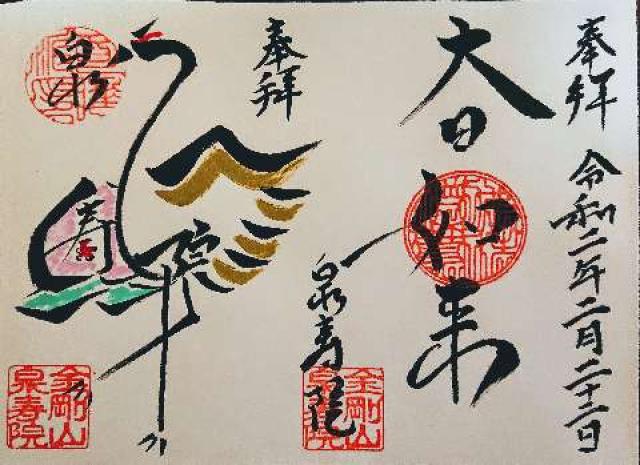 奉拝
令和二年二月二十二日
大日如来
泉寿院
金剛山
泉寿院
奉拝
泉
寿
院
金剛山
泉寿院